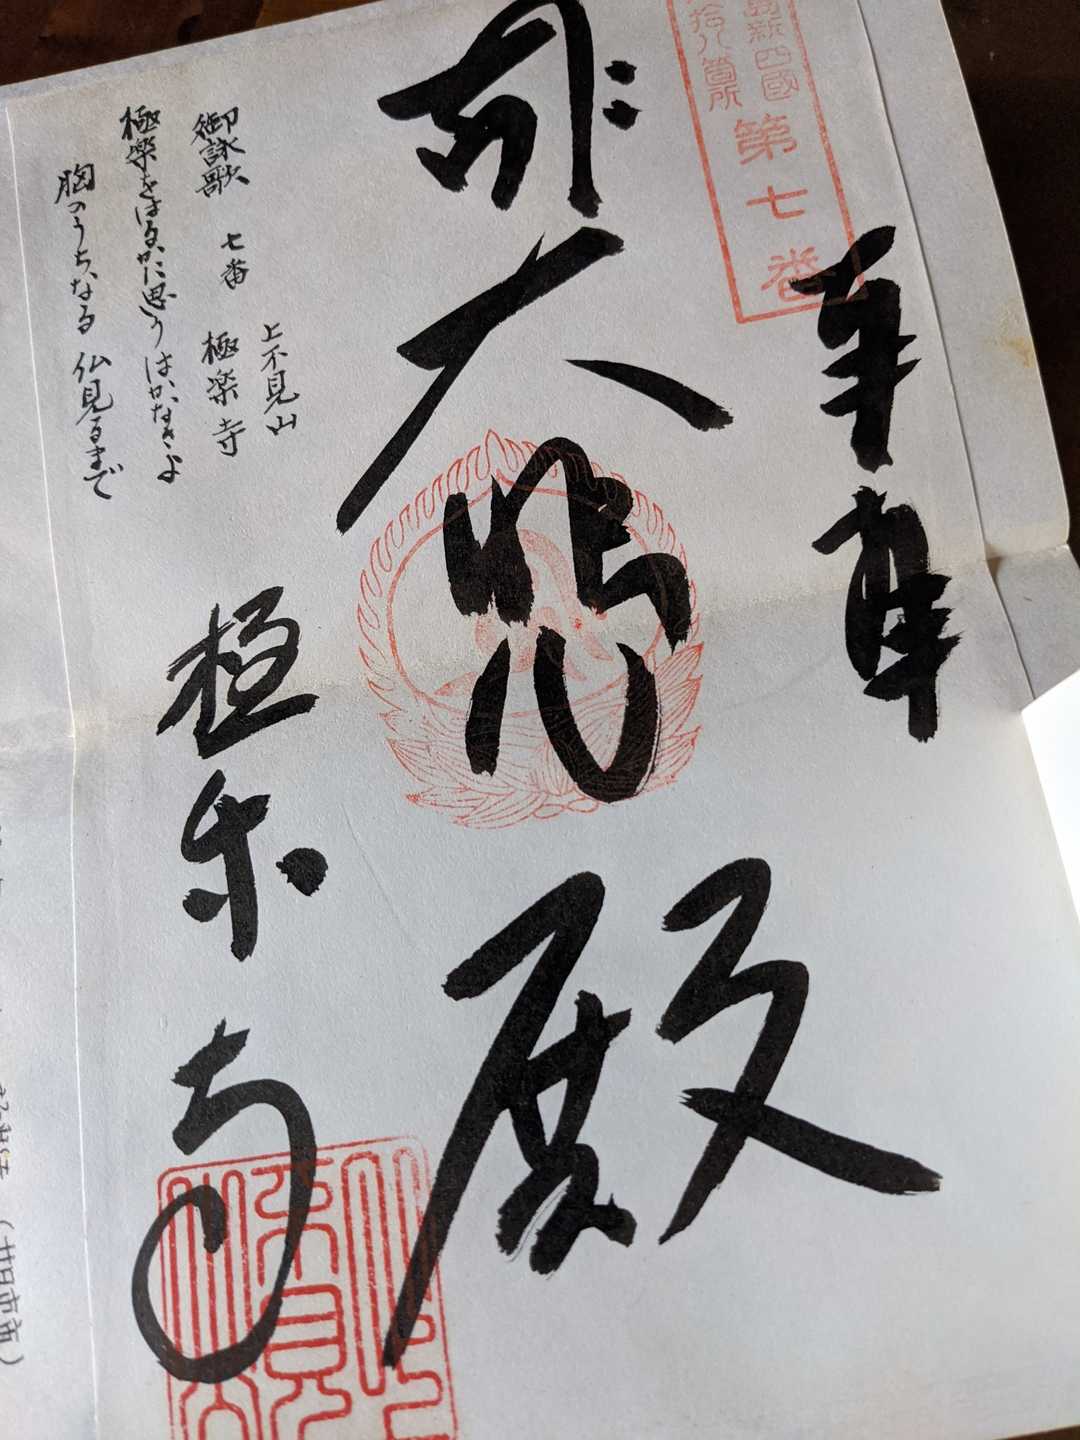 島新四國
拾八箇所
第七番
奉拝
大悲殿
極楽寺
上不見山
御詠歌 七番 極楽寺
極楽をはるかに思うはかなさよ
胸のうちなる 仏見るまで